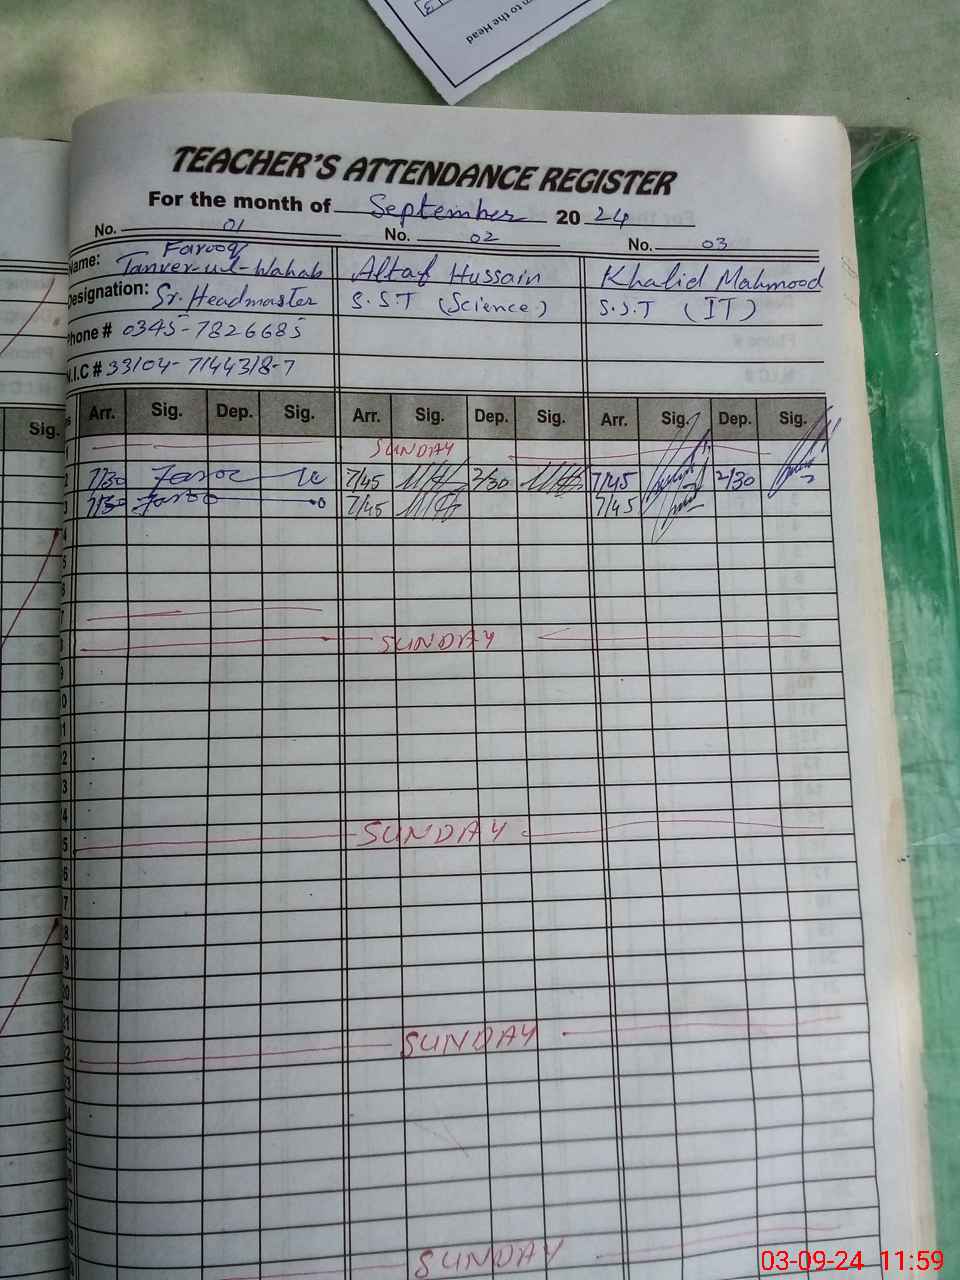 m to the Head
TEACHER'S ATTENDANCE REGISTER
For the month of September 20 24
No. 01 No. 02 No. 03
Name: Farooq Tanver-ul-Wahab Altaf Hussain Khalid Mahmood
Designation: Sr. Headmaster S.S.T (Science.) S.S.T (IT)
Phone # 0345-7826685
N.I.C # 33104-7144318-7
Sig. Arr. Sig. Dep. Sig. Arr. Sig. Dep. Sig. Arr. Sig. Dep. Sig.
1 SUNDAY
2 7/30 7/45 2/30 7/45 2/30
3 7/30 7/45 7/45
4
5
6
7
8 SUNDAY
9
0
1
2
3
4
5 SUNDAY
6
7
8
9
20
21
22 SUNDAY
23
24
25
SUNDAY
03-09-24 11:59